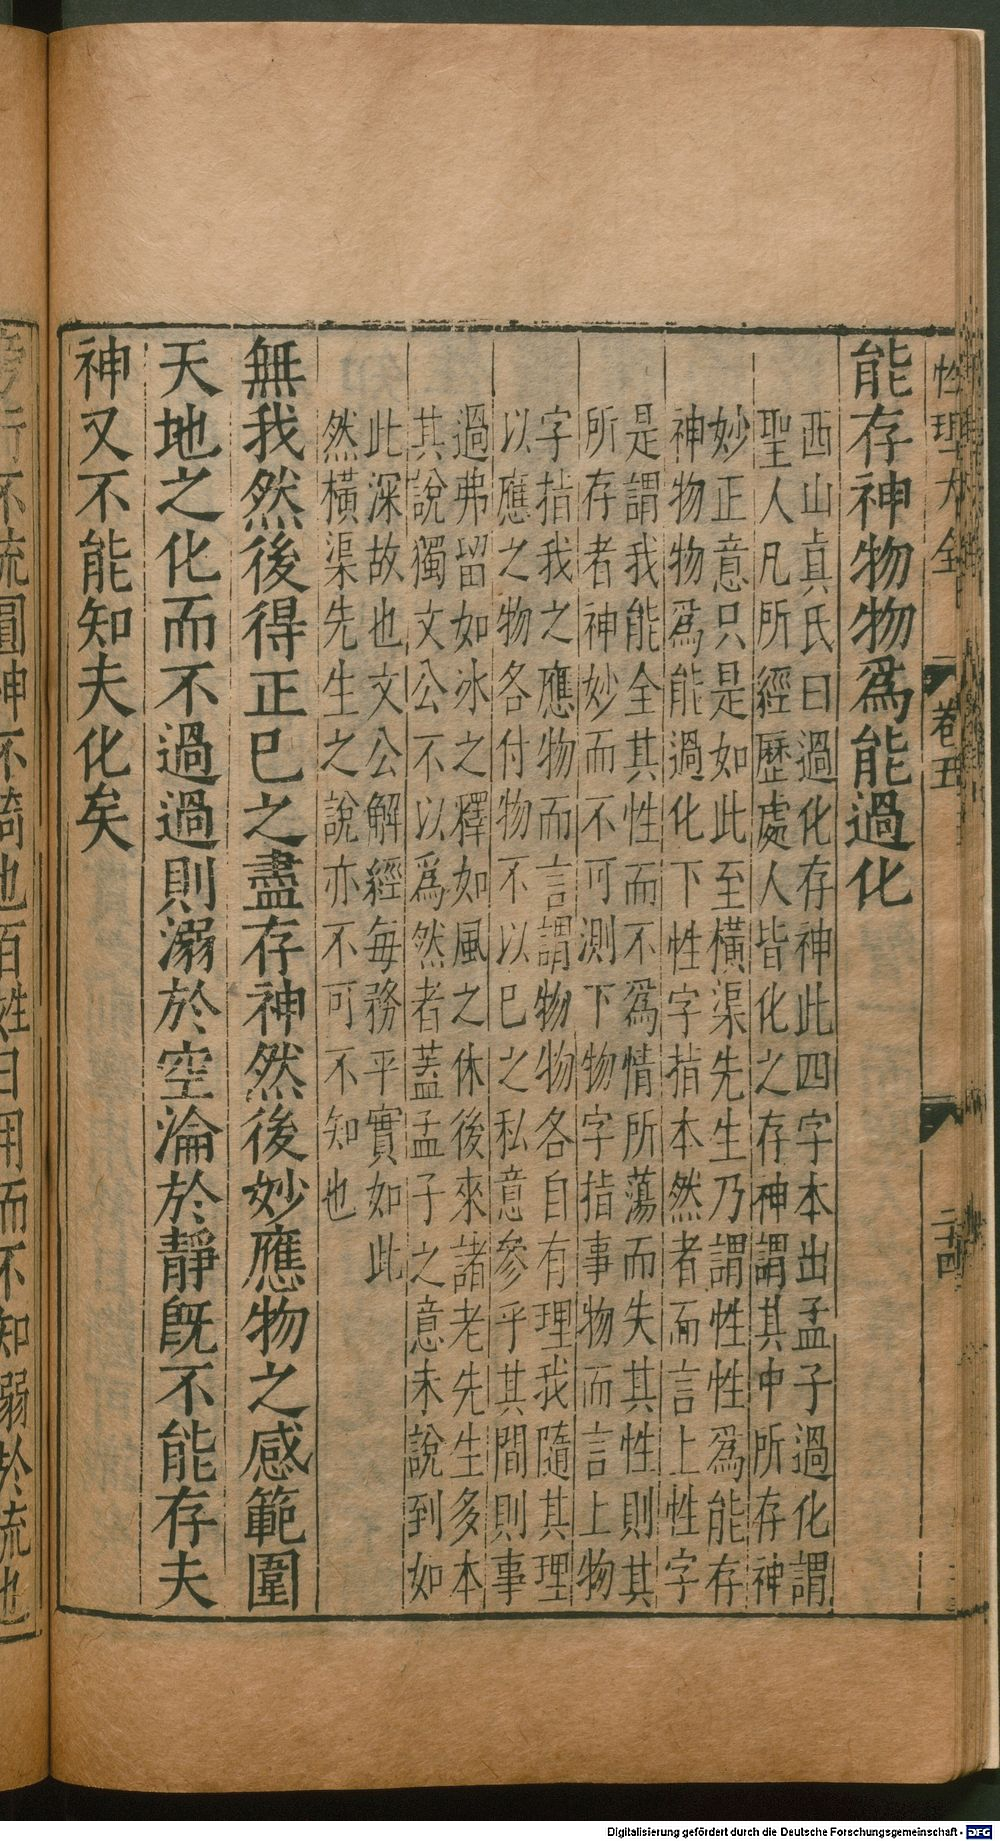 性理大全 卷五 二十四
能存神物物爲能過化
西山眞氏曰過化存神此四字本出孟子過化謂
聖人凡所經歷處人皆化之存神謂其中所存神
妙正意只是如此至橫渠先生乃謂性性爲能存
神物物爲能過化下性字指本然者而言上性字
是謂我能全其性而不爲情所蕩而失其性則其
所存者神妙而不可測下物字指事物而言上物
字指我之應物而言謂物物各自有理我隨其理
以應之物各付物不以巳之私意參乎其間則事
過弗留如冰之釋如風之休後來諸老先生多本
其說獨文公不以爲然者蓋孟子之意未說到如
此深故也文公解經每務平實如此
然橫渠先生之說亦不可不知也
無我然後得正巳之盡存神然後妙應物之感範圍
天地之化而不過過則溺於空淪於靜旣不能存夫
神又不能知夫化矣
旁行不流圓神不倚也百姓日用而不知溺於流也
Digitalisierung gefördert durch die Deutsche Forschungsgemeinschaft - DFG